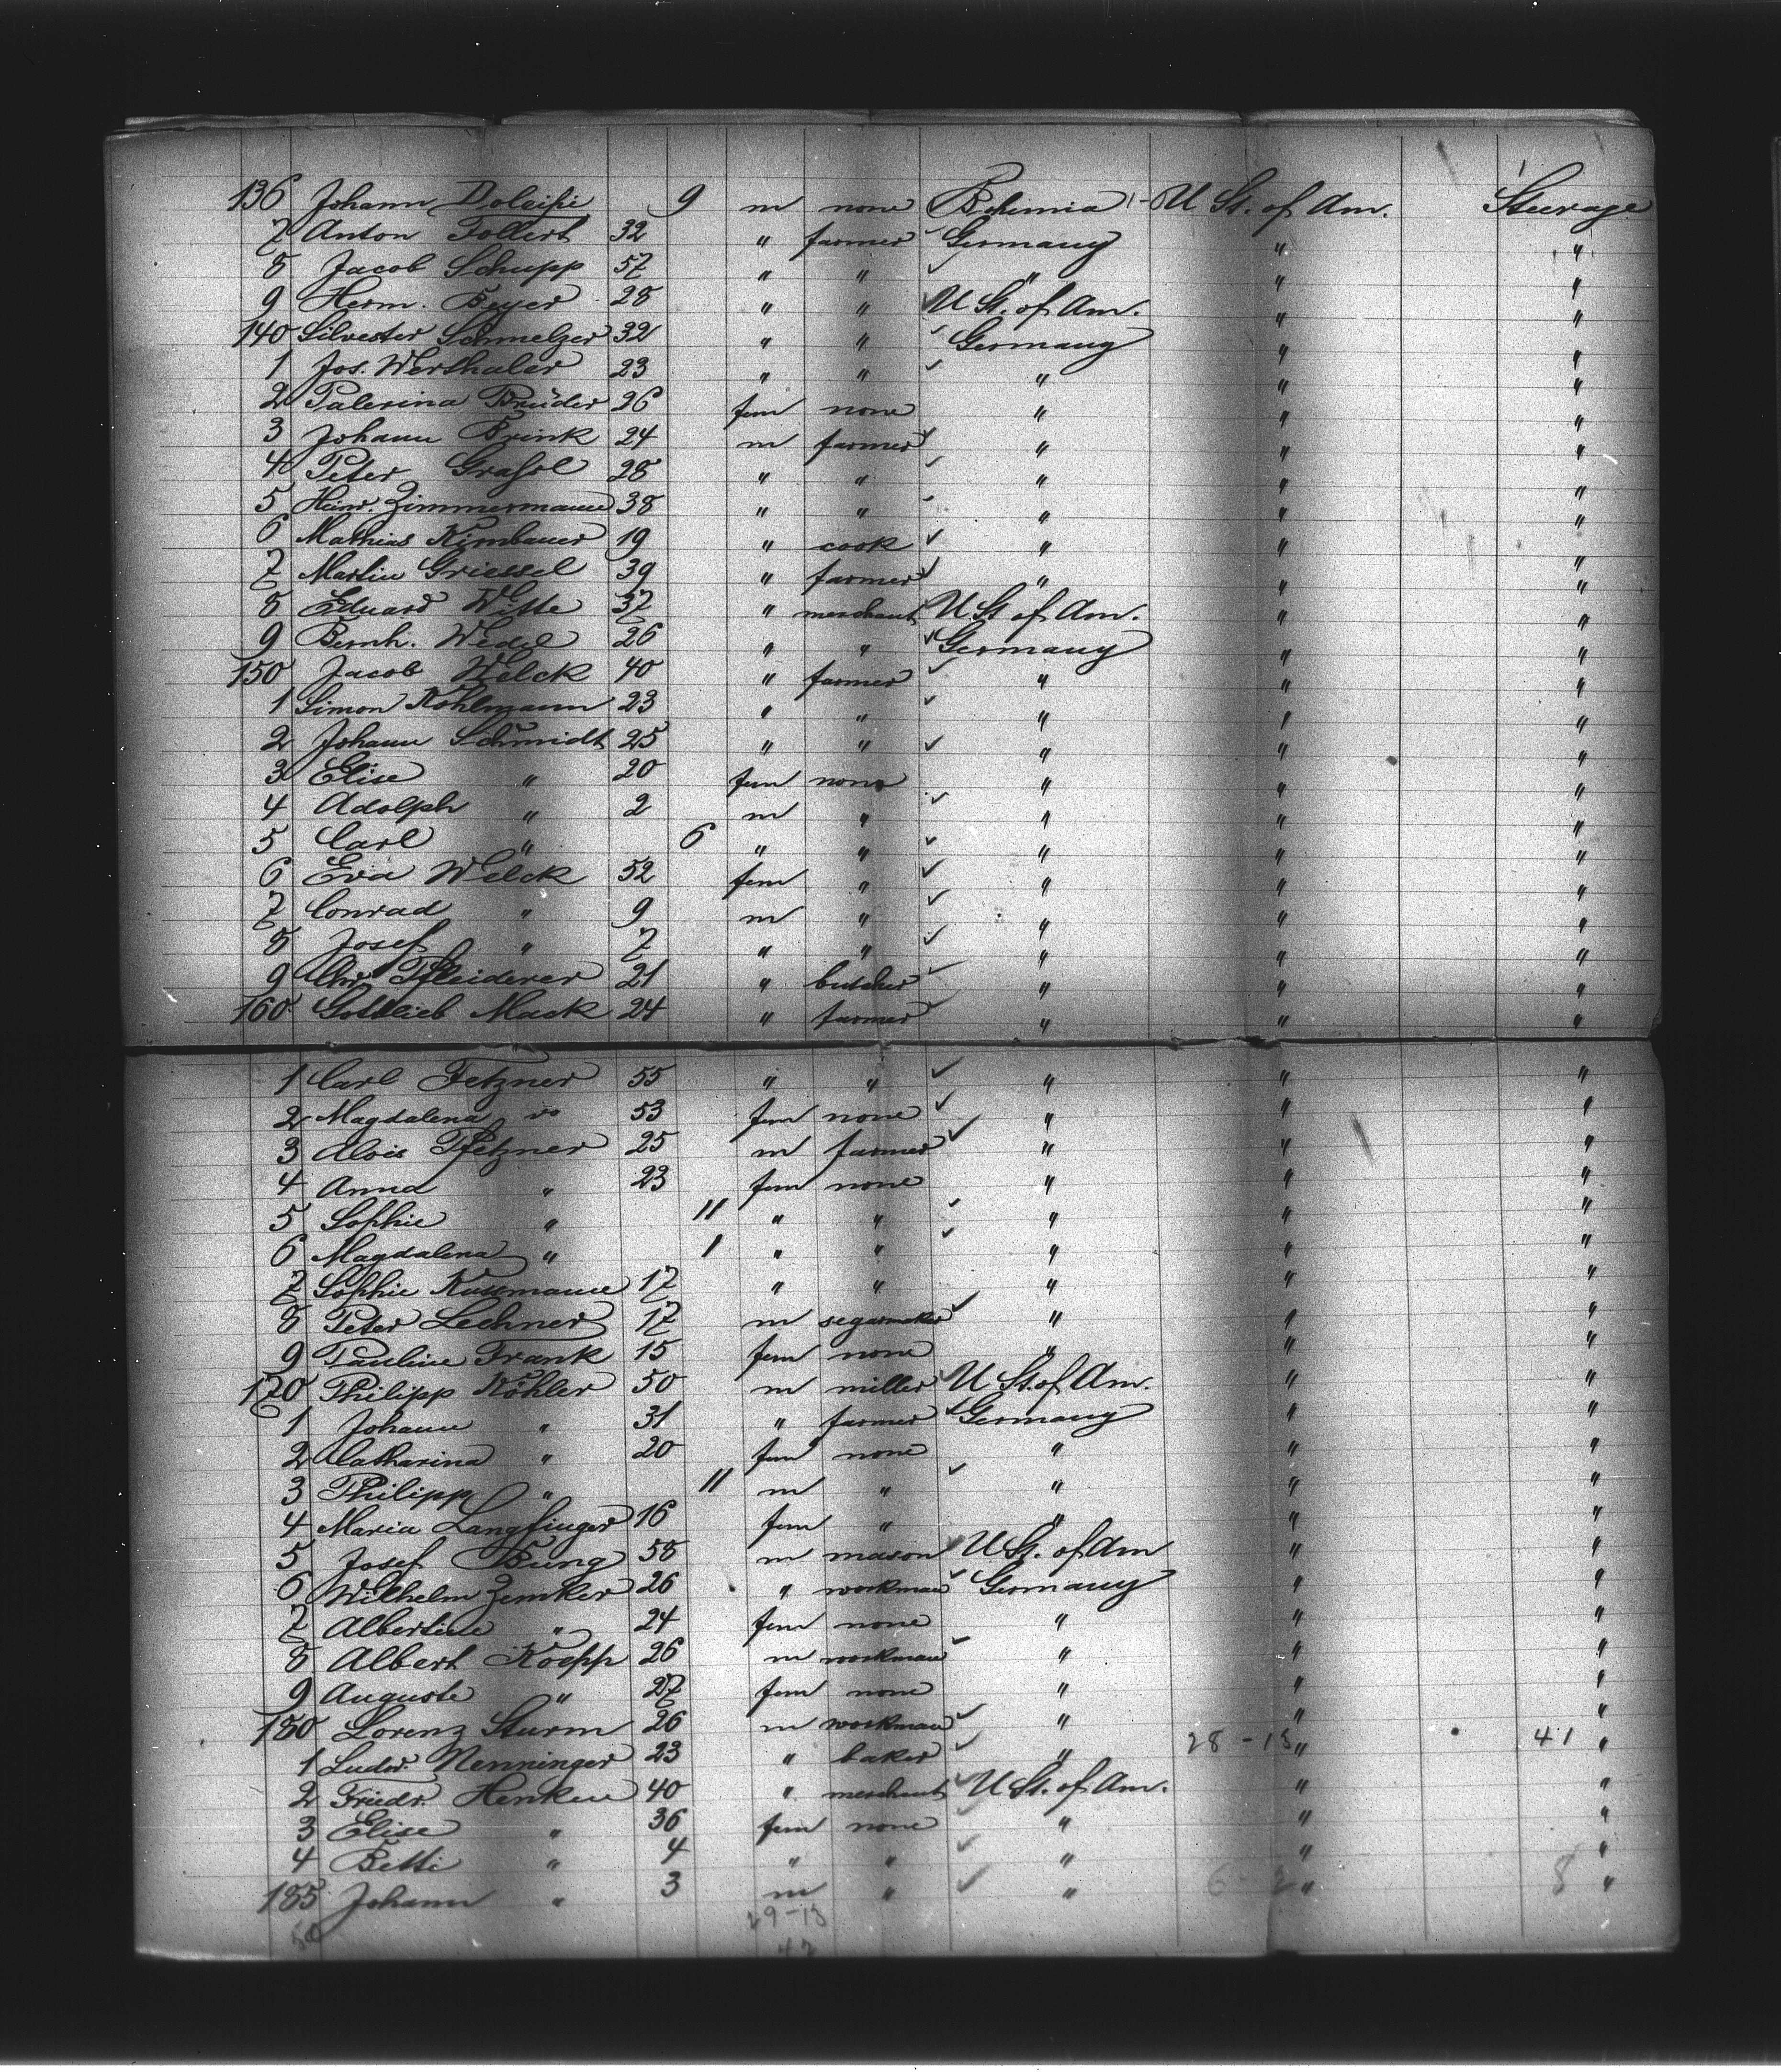 136 Johann Doleisi 9 m none Bohimia 1- U St. of Am. Steerage
7 Anton Follert 32 " farmer Germany " "
8 Jacob Schupp 57 " " " " "
9 Herm. Beyer 28 " " U St. of Am. " "
140 Silvester Schmelzer 32 " " Germany " "
1 Jos. Werthaler 23 " " " " "
2 Palerina Brüder 26 fem none " " "
3 Johann Brink 24 m farmer " " "
4 Peter 28 " " " " "
5 Heinr. Zimmermann 38 " " " " "
6 Mathias Kimbauer 19 " cook " " "
7 Martin Griessel 39 " farmer " " "
8 Eduard Witte 37 " merchant U. St of Am. " "
9 Bernh. Wedel 26 " " Germany " "
150 Jacob Welck 40 " farmer " " "
1 Simon Kohlmann 23 " " " " "
2 Johann Schmidt 25 " " " " "
3 Elise " 20 fem none " " "
4 Adolph " 2 m " " " "
5 Carl " 6 " " " " "
6 Eva Welck 52 fem " " " "
7 Conrad " 9 m " " " "
8 Josef " 7 " " " " "
9 Chr. Pfleiderer 21 " butcher " " "
160 Gottlieb Mack 24 " farmer " " "
1 Carl Fetzner 55 " " " " "
2 Magdalena do 53 fem none " " "
3 Alois Pfetzner 25 m farmer " " "
4 Anna " 23 fem none " " "
5 Sophie " 11 " " " " "
6 Magdalena " 1 " " " " "
7 Sophie Kussmaue 17 " " " " "
8 Peter Lechner 17 m segarmaker " " "
9 Pauline Frank 15 fem none " " "
170 Philipp Köhler 50 m miller U St. of Am. " "
1 Johann " 31 " farmer Germany " "
2 Catharina " 20 fem none " " "
3 Philipp " 11 m " " " "
4 Maria Langfinger 16 fem " " " "
5 Josef Bung 58 m mason U St. of Am " "
6 Wilhelm Zemker 26 " workman Germany " "
7 Albertine " 24 fem none " " "
8 Albert Koepp 26 m workman " " "
9 Auguste " 27 fem none " " "
180 Lorenz Sturm 26 m workman " " "
1 Ludw. Nenninger 23 " baker " 28-13 " 41 "
2 Friedr. Henken 40 " merchant U St. of Am. " "
3 Elise " 36 fem none " " "
4 Betti " 4 " " " " "
185 Johann " 3 m " " 6 2 " 8 "
29-13
42